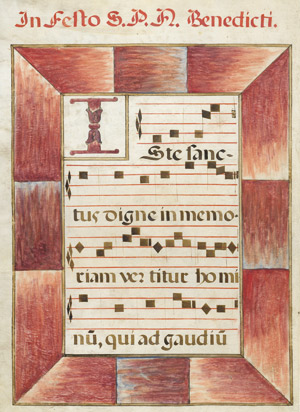 In Festo S. P. N. Benedicti.
I
Ste sanc-
tus digne in memo-
riam vertitur homi
nū, qui ad gaudiū